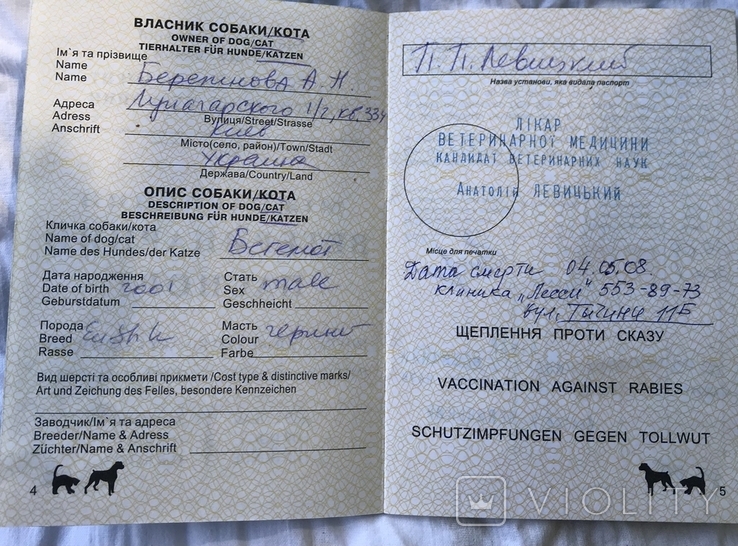 ВЛАСНИК СОБАКИ/КОТА
OWNER OF DOG/CAT
TIERHALTER FÜR HUNDE/KATZEN
Ім`я та прізвище
Name
Name
А. Н.
Адреса
Adress
Anschrift
Луначарского 1/2, кв. 334
Вулиця/Street/Strasse
Киев
Місто(село, район)/Town/Stadt
Украина
Держава/Country/Land
ОПИС СОБАКИ/КОТА
DESCRIPTION OF DOG/CAT
BESCHREIBUNG FÜR HUNDE/KATZEN
Кличка собаки/кота
Name of dog/cat
Name des Hundes/der Katze
Бегемот
Дата народження
Date of birth 2001
Geburstdatum
Стать
Sex male
Geschheicht
Порода
Breed
Rasse
Масть
Colour
Farbe
Вид шерсті та особливі прикмети /Cost type & distinctive marks/
Art und Zeichung des Felles, besondere Kennzeichen
Заводчик/Ім`я та адреса
Breeder/Name & Adress
Züchter/Name & Anschrift
4
П. П. Левицкий
Назва установи, яка видала паспорт
ЛІКАР
ВЕТЕРИНАРНОЇ МЕДИЦИНИ
КАНДИДАТ ВЕТЕРИНАРНИХ НАУК
Анатолій ЛЕВИЦЬКИЙ
Місце для печатки
Дата смерти 04.05.08.
клиника "Лесси" 553-89-73
вул. Тычины 11Б
ЩЕПЛЕННЯ ПРОТИ СКАЗУ
VACCINATION AGAINST RABIES
SCHUTZIMPFUNGEN GEGEN TOLLWUT
5
VIOLITY